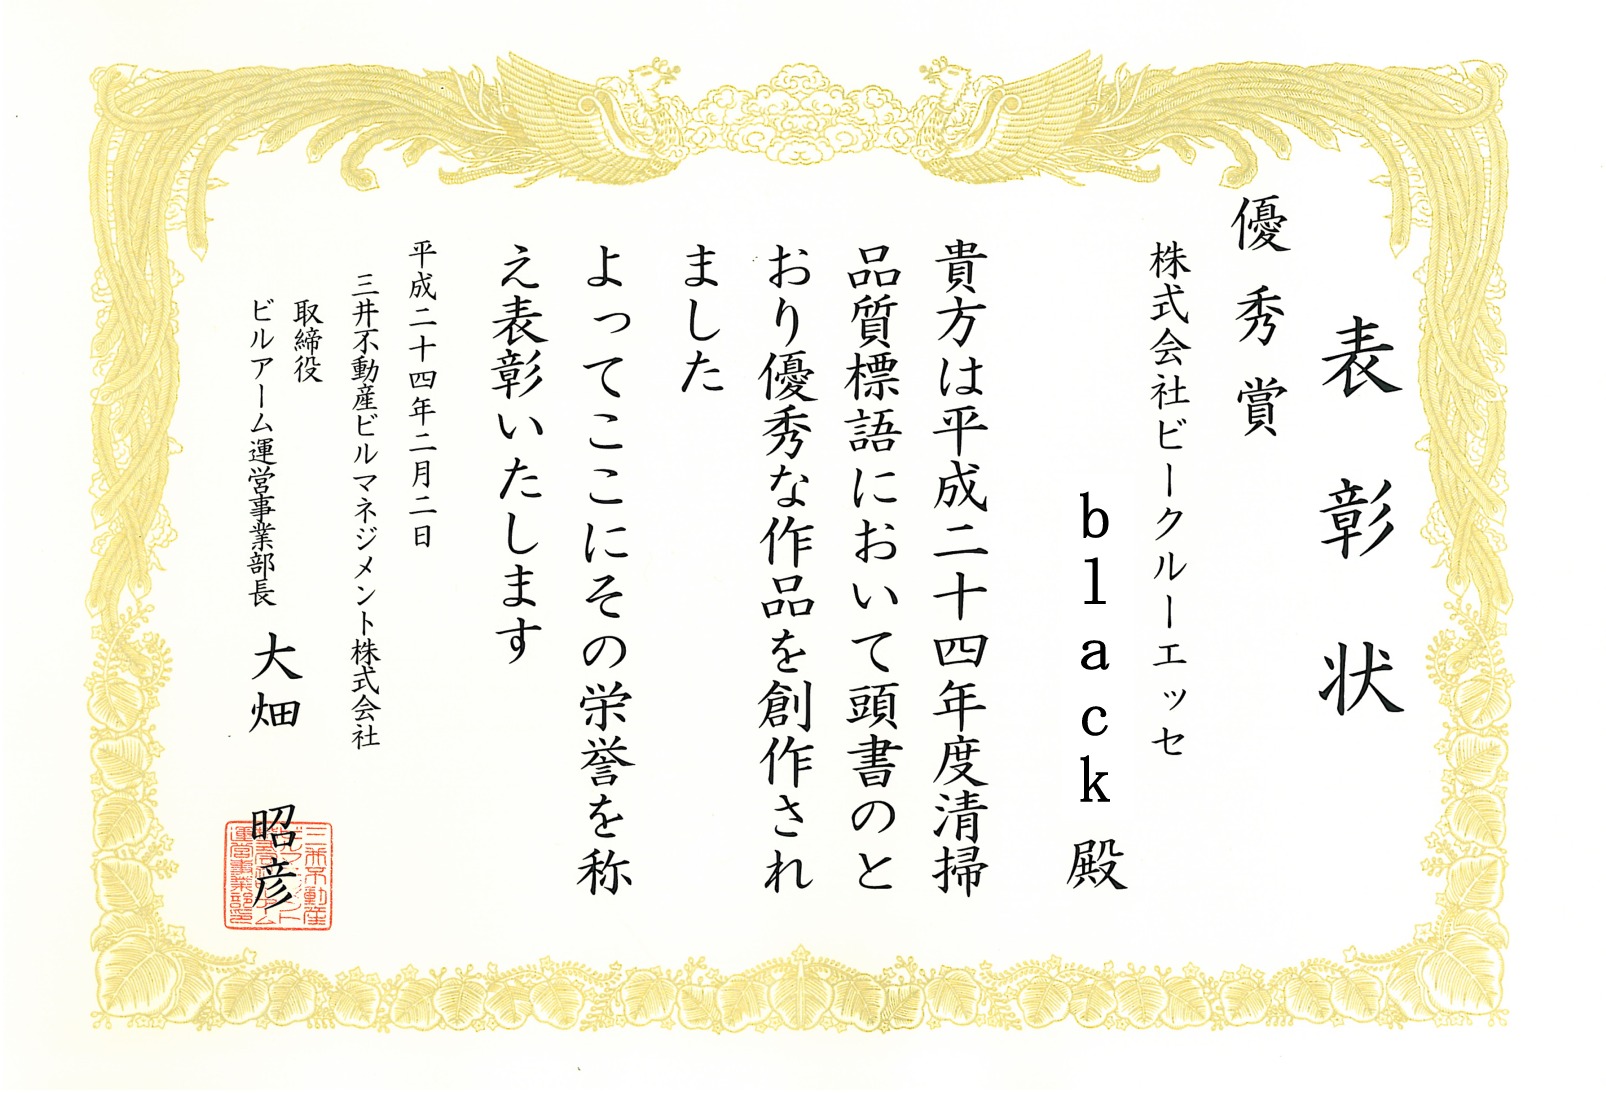 表彰状
優秀賞
株式会社ビークルーエッセ
black殿
貴方は平成二十四年度清掃
品質標語において頭書のと
おり優秀な作品を創作され
ました
よってここにその栄誉を称
え表彰いたします
平成二十四年二月二日
三井不動産ビルマネジメント株式会社
取締役
ビルアーム運営事業部長 大畑 昭彦